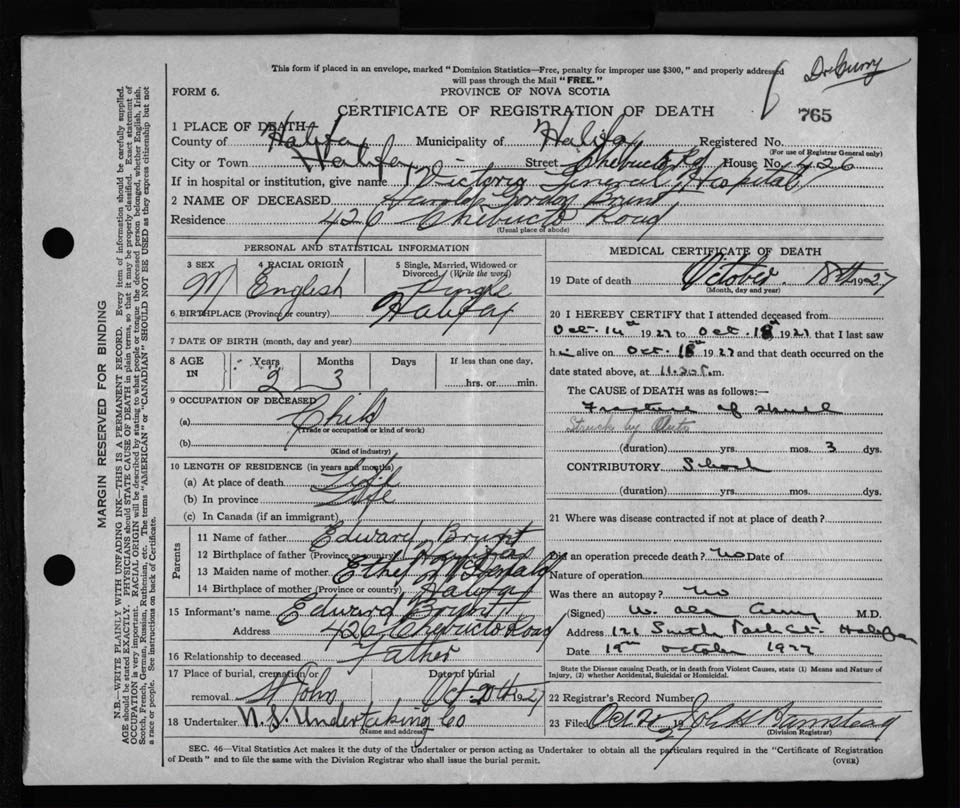 Dr Curry
This form if placed in an envelope, marked "Dominion Statistics—Free, penalty for improper use $300," and properly addressed
will pass through the Mail "FREE."
FORM 6.
PROVINCE OF NOVA SCOTIA
765
CERTIFICATE OF REGISTRATION OF DEATH
1 PLACE OF DEATH—
County of Halifax Municipality of Halifax Registered No.
(For use of Registrar General only)
City or Town Halifax Street Chebucto Rd House No. 426
If in hospital or institution, give name Victoria General Hospital
2 NAME OF DECEASED Harold Gordon Brunt
Residence 426 Chebucto Road
(Usual place of abode)
PERSONAL AND STATISTICAL INFORMATION
3 SEX M
4 RACIAL ORIGIN English
5 Single, Married, Widowed or Divorced (Write the word) Single
6 BIRTHPLACE (Province or country) Halifax
7 DATE OF BIRTH (month, day and year)
8 AGE IN Years 2 Months 3 Days If less than one day, hrs. or min.
9 OCCUPATION OF DECEASED
(a) Child
(Trade or occupation or kind of work)
(b)
(Kind of industry)
10 LENGTH OF RESIDENCE (in years and months)
(a) At place of death Life
(b) In province Life
(c) In Canada (if an immigrant)
Parents
11 Name of father Edward Brunt
12 Birthplace of father (Province or country) Halifax
13 Maiden name of mother Ethel McDonald
14 Birthplace of mother (Province or country) Halifax
15 Informant's name Edward Brunt
Address 426 Chebucto Road
16 Relationship to deceased Father
17 Place of burial, cremation or removal St John Date of burial Oct. 20th 1927
18 Undertaker N.S. Undertaking Co
(Name and address)
MEDICAL CERTIFICATE OF DEATH
19 Date of death October 18th 1927
(Month, day and year)
20 I HEREBY CERTIFY that I attended deceased from
Oct. 14th 1927 to Oct. 18th 1927 that I last saw
him alive on Oct. 18th 1927 and that death occurred on the
date stated above, at 11.20 P.m.
The CAUSE of DEATH was as follows:—
Fracture of skull
Struck by Auto
(duration) yrs. mos. 3 dys.
CONTRIBUTORY Shock
(duration) yrs. mos. dys.
21 Where was disease contracted if not at place of death?
Did an operation precede death? no Date of
Nature of operation
Was there an autopsy? no
(Signed) W. Alan Curry M.D.
Address 121 South Park St. Halifax
Date 19th October 1927
State the Disease causing Death, or in death from Violent Causes, state (1) Means and Nature of
Injury, (2) whether Accidental, Suicidal or Homicidal.
22 Registrar's Record Number
23 Filed Oct 20 1927 John H Barnstead
(Division Registrar)
SEC. 46—Vital Statistics Act makes it the duty of the Undertaker or person acting as Undertaker to obtain all the particulars required in the "Certificate of Registration
of Death" and to file the same with the Division Registrar who shall issue the burial permit.
(OVER)
MARGIN RESERVED FOR BINDING
N.B.—WRITE PLAINLY WITH UNFADING INK—THIS IS A PERMANENT RECORD. Every item of information should be carefully supplied.
AGE should be stated EXACTLY. PHYSICIANS should STATE CAUSE OF DEATH in plain terms, so that it may be properly classified. Exact statement of
OCCUPATION is very important. RACIAL ORIGIN will be described by stating to what people or tongue the deceased person belonged, whether English, Irish,
Scotch, French, German, Russian, Ruthenian, etc. The terms "AMERICAN" or "CANADIAN" SHOULD NOT BE USED as they express citizenship but not
a race or people. See instructions on back of Certificate.